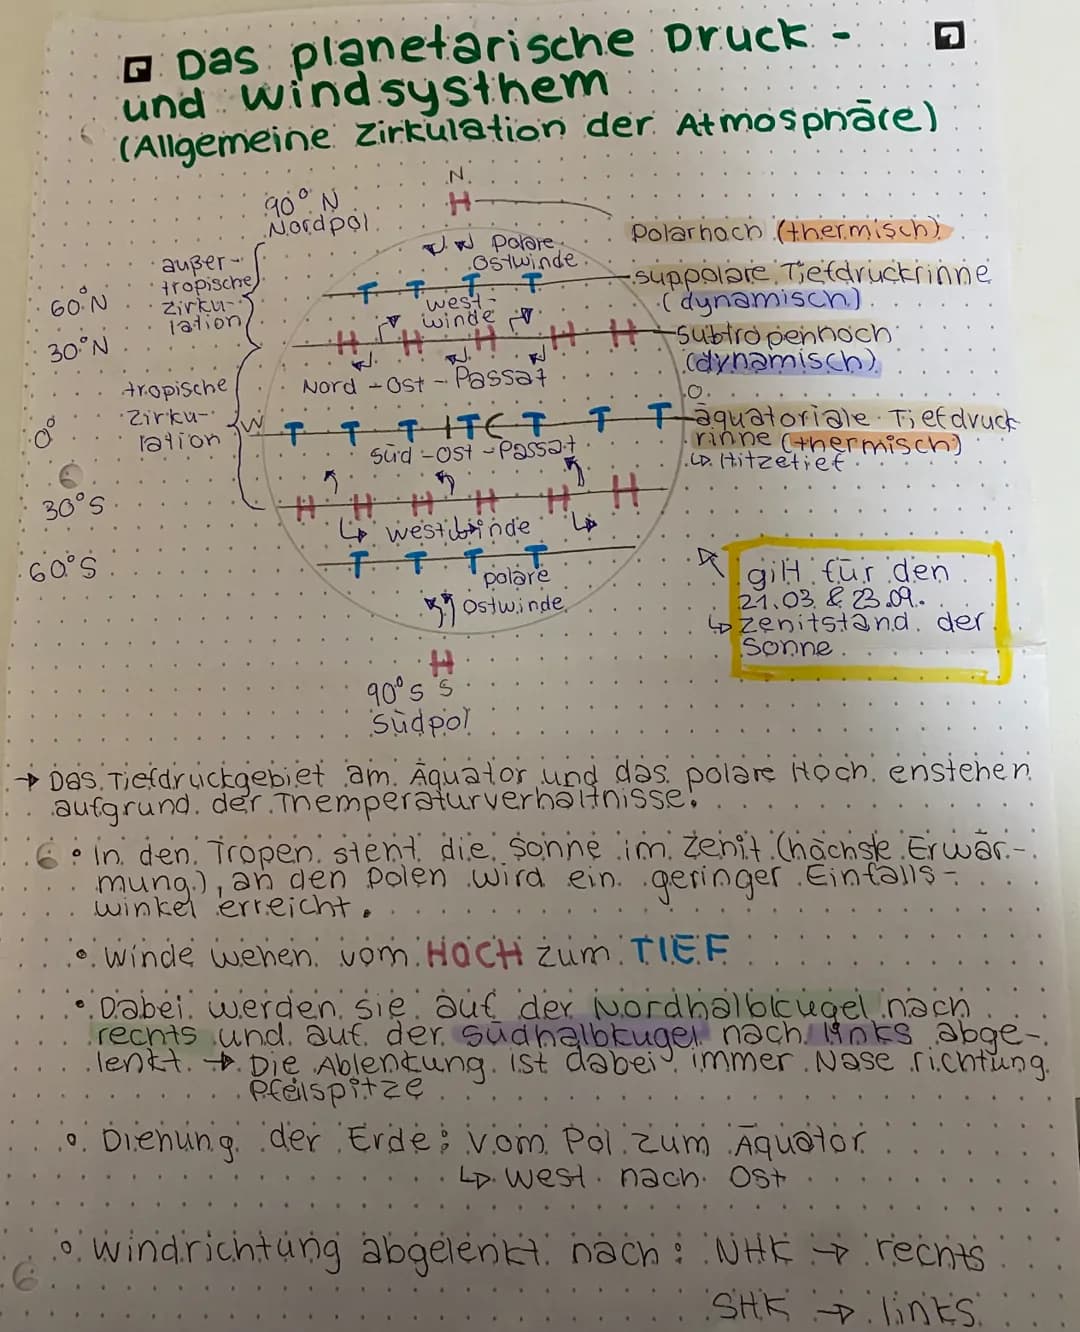 Das planetarische Druck -
und windsysthem
(Allgemeine Zirkulation der Atmosphäre)
N
90° N
Nordpol
H
Polarhoch (thermisch)
polare
Ostwinde
außer-
tropische
zirku-
lation
60°N
T T T T
suppolare Tiefdruckrinne
(dynamisch)
west-
winde
30°N
H H H H H
subtropenhoch
(dynamisch)
Nord - Ost - Passat
tropische
Zirku-
lation
0°
W
O
T T T ITC T T T
äquatoriale Tiefdruck
rinne (thermisch)
↳ Hitzetief
Süd - Ost - Passat
30°S
H H H H H H
westwinde
60°S
T T T T
polare
Ostwinde
gilt für den
21.03. & 23.09.
↳ zenitstand der
Sonne
H
90°S S
Südpol
→ Das Tiefdruckgebiet am Äquator und das polare Hoch enstehen
aufgrund der Themperaturverhältnisse.
• In den Tropen steht die Sonne im Zenit (höchste Erwär-
mung), an den Polen wird ein geringer Einfalls-
winkel erreicht.
• winde wehen vom HOCH zum TIEF
• Dabei werden sie auf der Nordhalbkugel nach
rechts und auf der südhalbkugel nach links abge-
lenkt. → Die Ablenkung ist dabei immer Nase richtung
Pfeilspitze
• Drehung der Erde: vom Pol zum Äquator
↳ west nach Ost
• windrichtung abgelenkt nach: NHK → rechts
SHK → links